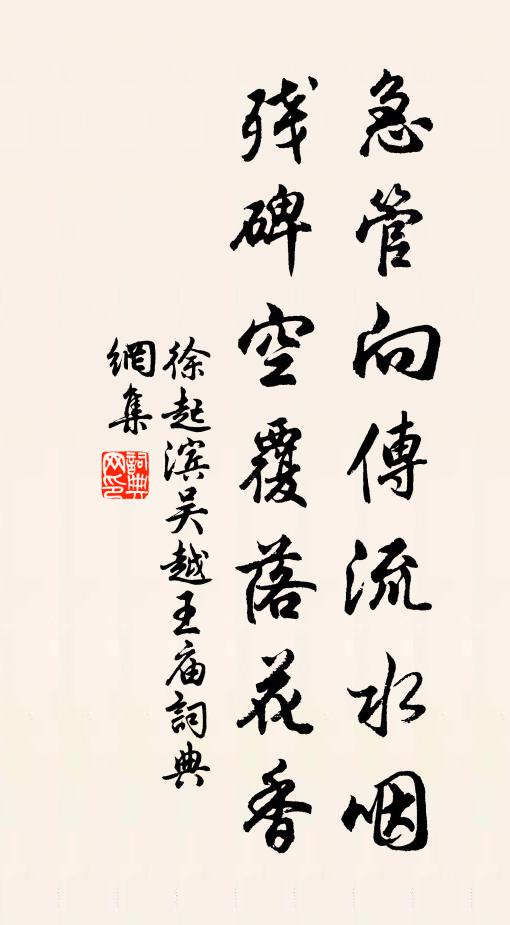 急管向傳流水咽
残碑空覆落花香
徐起滨吴越王庙詞典
網集
詞典
网印